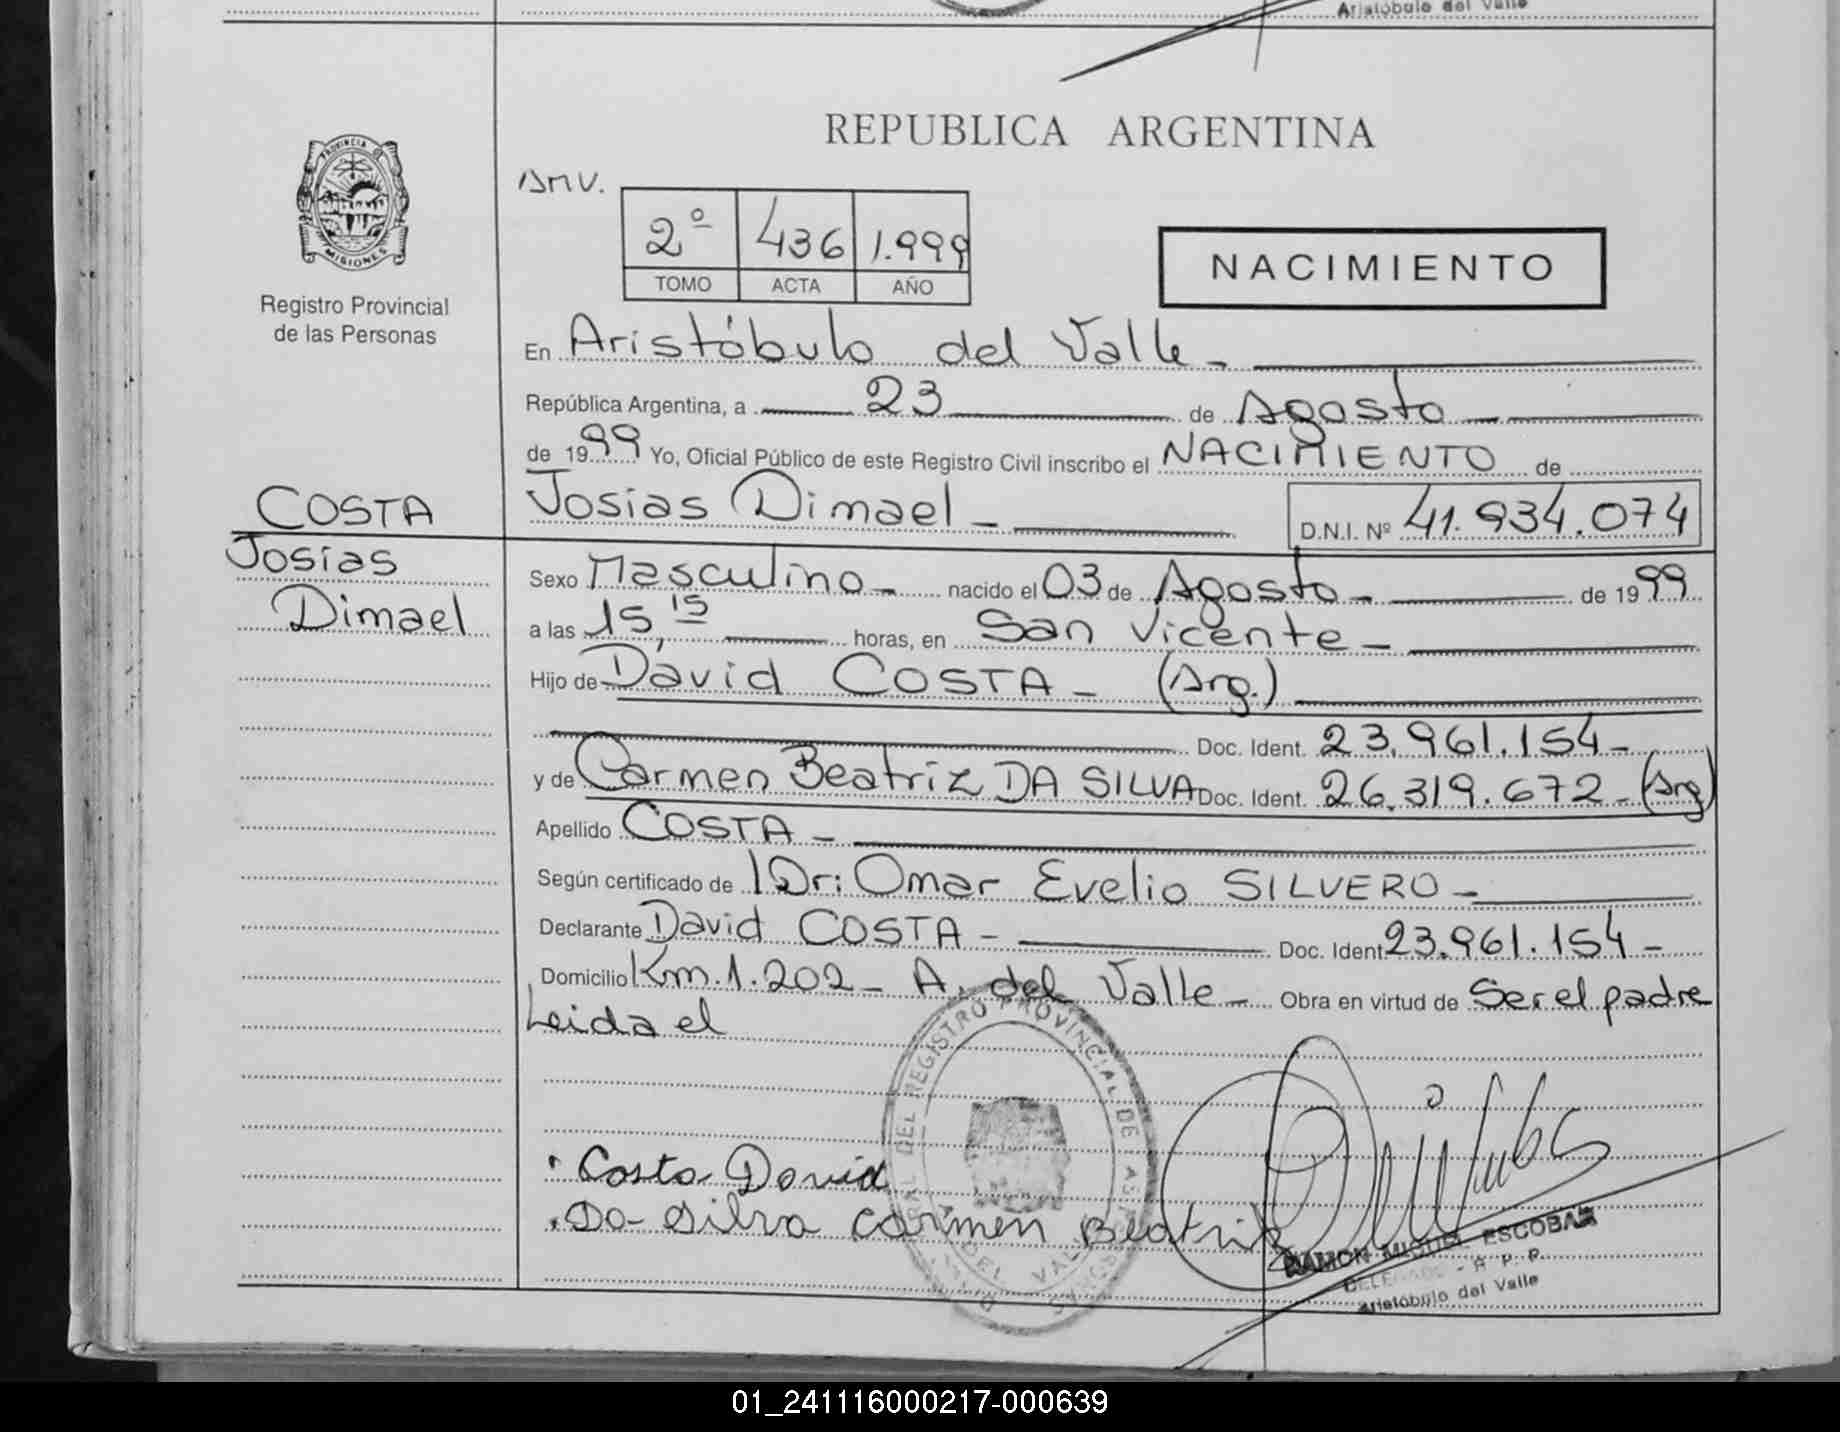 Aristóbulo del Valle
REPUBLICA ARGENTINA
PROVINCIA D
MISIONES
Registro Provincial
de las Personas
2º 436 1.999
TOMO ACTA AÑO
NACIMIENTO
En Aristóbulo del Valle-
República Argentina, a 23 de Agosto
de 1999 Yo, Oficial Público de este Registro Civil inscribo el NACIMIENTO de
Josias Dimael - D.N.I. Nº 41.934.074
COSTA
Josias
Dimael
Sexo Masculino - nacido el 03 de Agosto - de 1999
a las 15,15 horas, en San Vicente -
Hijo de David COSTA - (Arg.)
Doc. Ident. 23.961.154-
y de Carmen Beatriz DA SILVA Doc. Ident. 26.319.672- (Arg)
Apellido COSTA -
Según certificado de Dr: Omar Evelio SILVERO -
Declarante David COSTA - Doc. Ident 23.961.154-
Domicilio Km.1.202- A. del Valle - Obra en virtud de Ser el padre
Leida el
REGISTRO PROVINCIAL DE
Costa David
Da Silva Carmen Beatriz
RAMON MIGUEL ESCOBAR
DELEGADO - R. P. P.
Aristóbulo del Valle
01_241116000217-000639